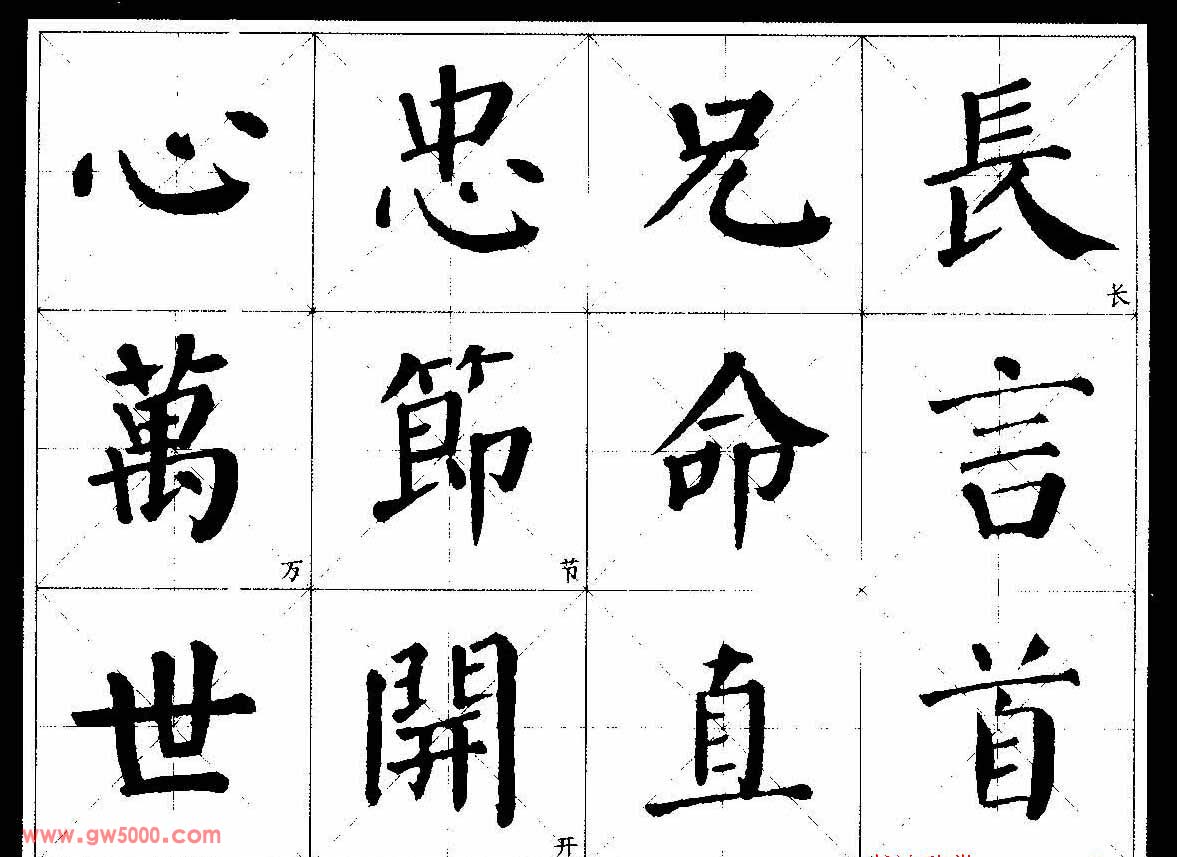 心 忠 兄 長
长
萬 節 命 言
万 节
世 開 直 首
开
www.gw5000.com